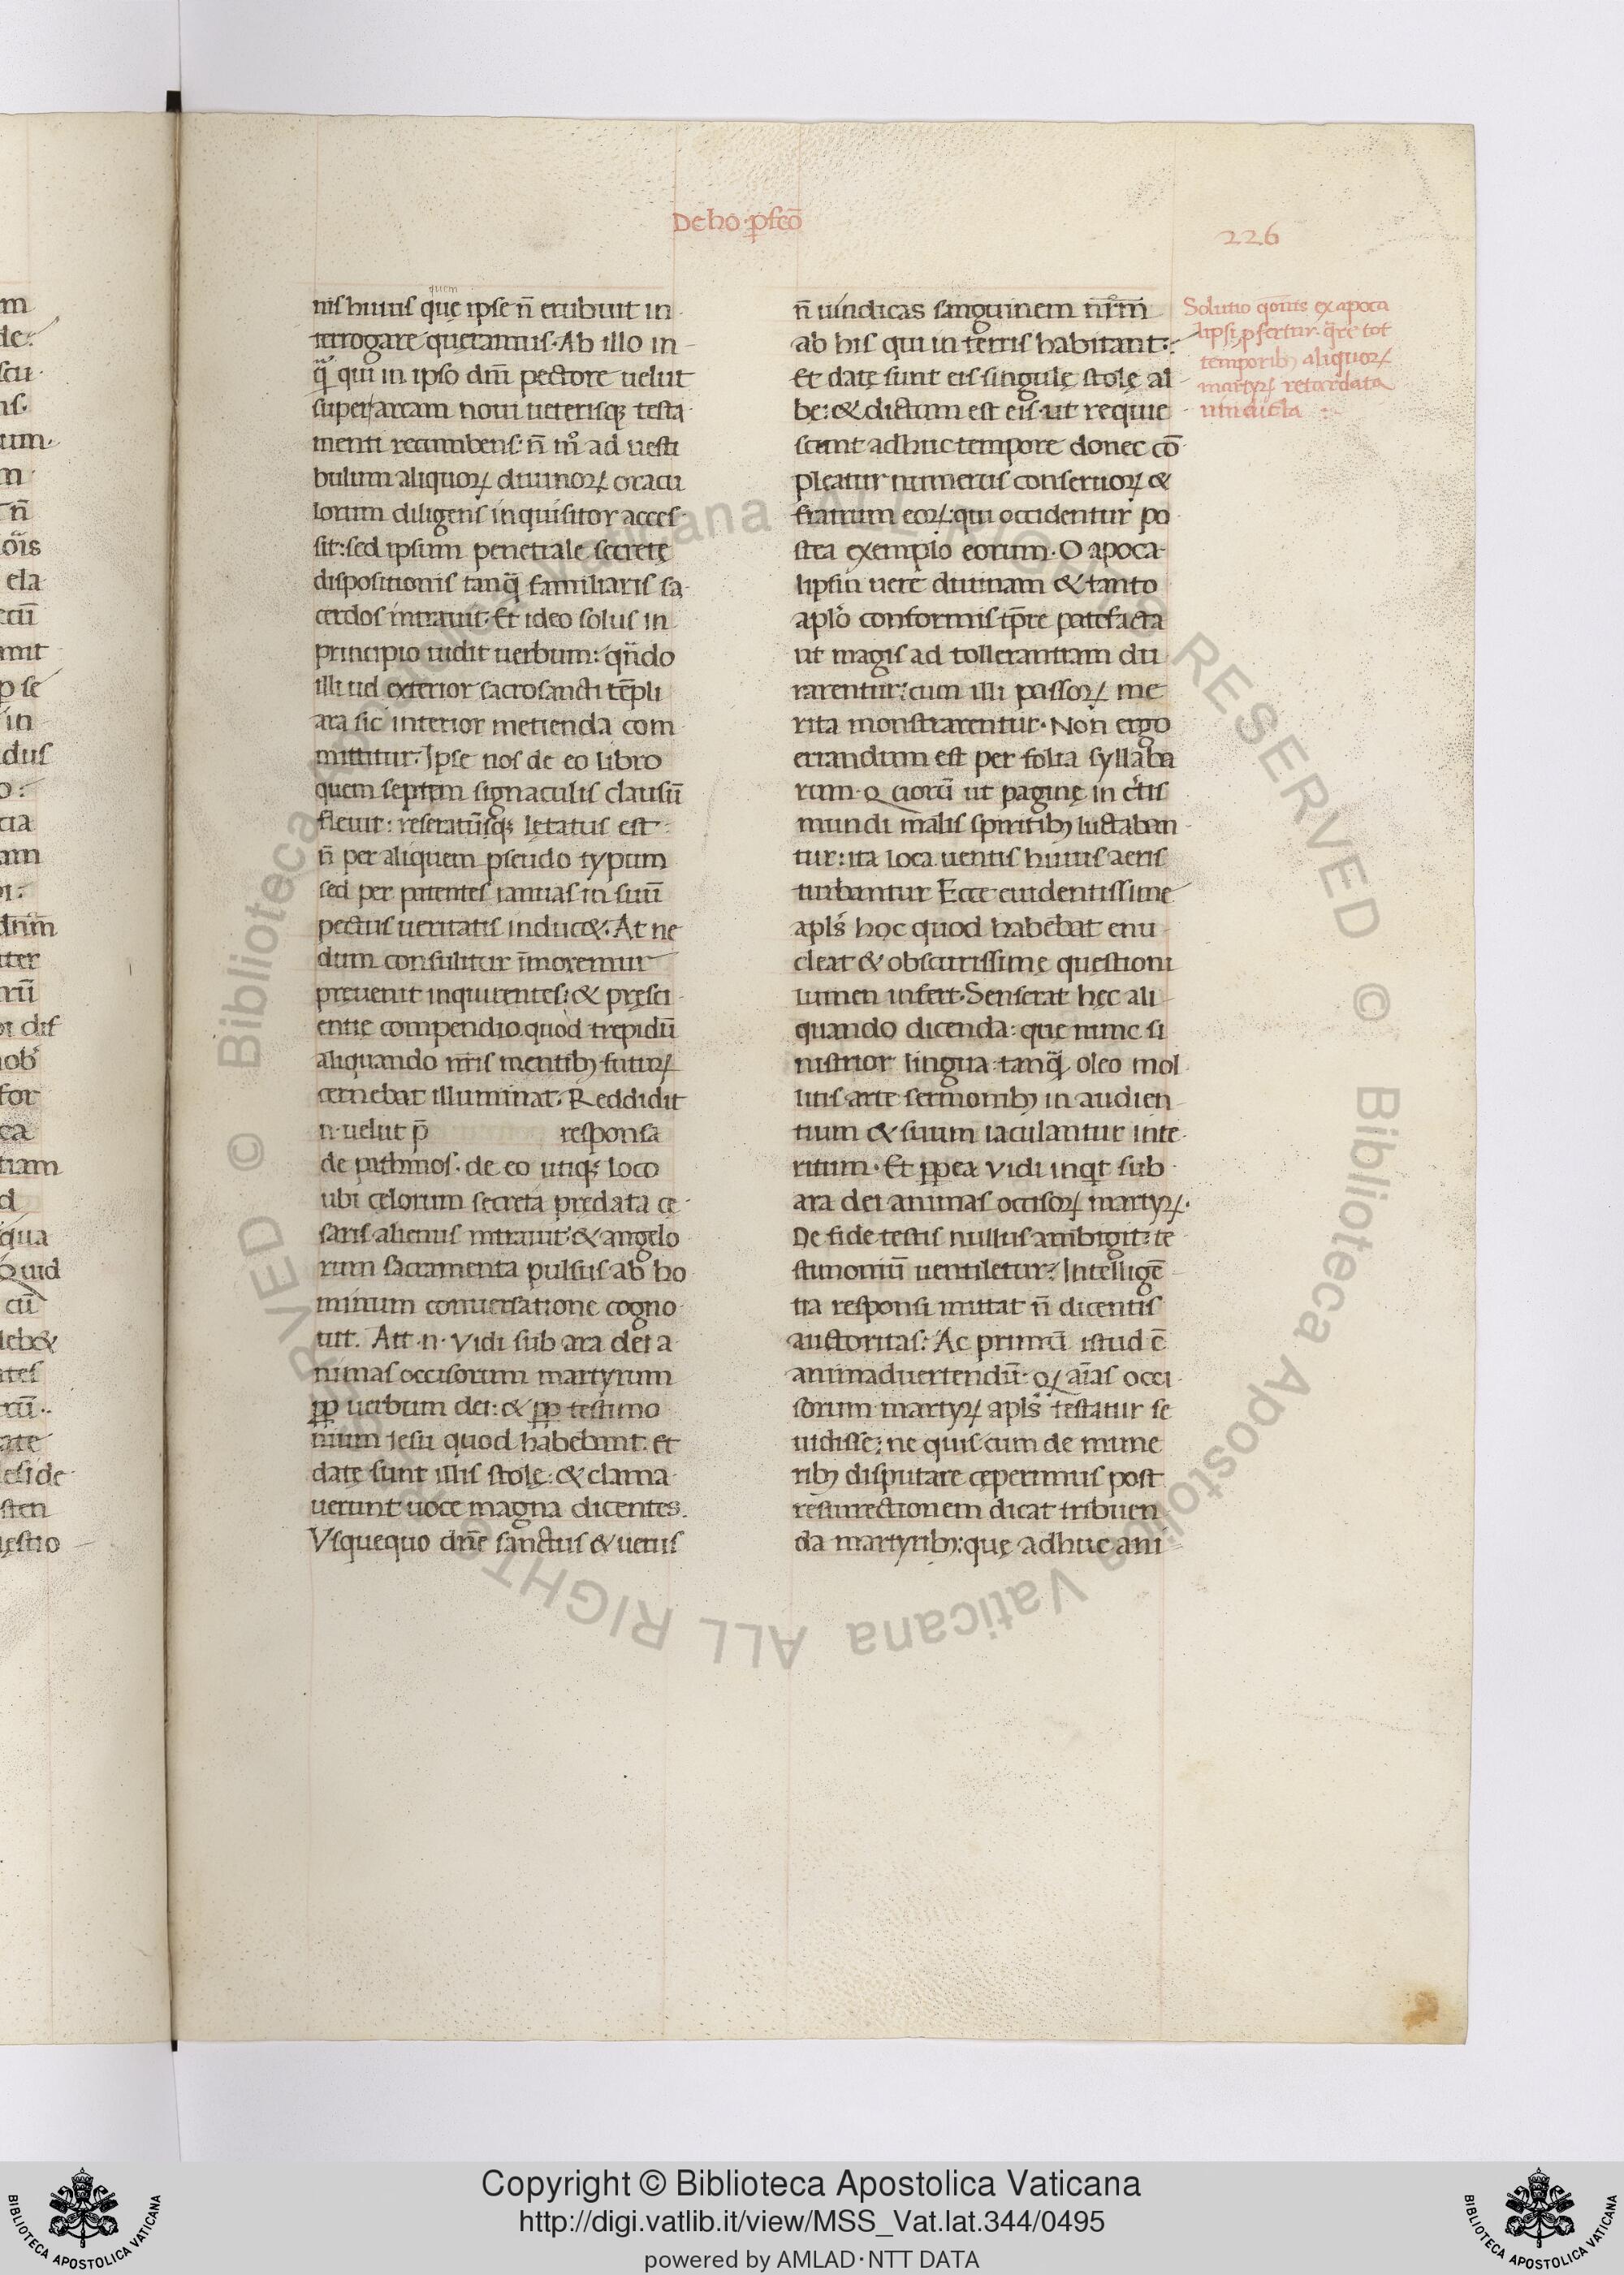 De ho. ꝑfcō
226
quem
nis huius quę ipse n̄ erubuit in
terrogare quęramus. Ab illo in
qͣ qui in ipso dn̄i pectore uelut
super arcam noui ueterisqꝫ testa
menti recumbens. n̄ mͦ ad uesti
bulum aliquoꝝ diuinoꝝ oracu
lorum diligens inquisitor acces
sit: sed ipsum penetrale secretę
dispositionis tanqͣ familiaris sa
cerdos intrauit. Et ideo solus in
principio uidit uerbum: qn̄do
illi ud exterior sacrosancti tēpli
ara sic interior metienda com
mittitur. Ipse nos de eo libro
quem septem signaculis clausū
fleuit: reseratūsqꝫ lętatus est
n̄ per aliquem pseudo typum
sed per patentes ianuas in suū
pectus ueritatis induc&. At ne
dum consulitur īmoremur
pręuenit inquirentes: & pręsci
entię compendio quod trepidū
aliquando nr̄is mentibꝫ futuꝝ
cernebat illuminat. Reddidit
n. uelut p̄ responsa
de pathmos. de eo utiqꝫ loco
ubi cęlorum secreta predata cę
saris alienus intrauit & angelo
rum sacramenta pulsus ab ho
minum conuersatione cogno
uit. Ait .n. Vidi sub ara dei a
nimas occisorum martyrum
ꝓꝑ uerbum dei: & ꝓꝑ testimo
nium iesu quod habebant. et
datę sunt illis stolę: & clama
uerunt uoce magna dicentes.
Vsquequo dn̄e sanctus & uerus
n̄ uindicas sanguinem nr̄m
ab his qui in terris habitant:
Et datę sunt eis singulę stolę al
be: & dictum est eis. ut requie
scant adhuc tempore donec cō
pleatur numerus conseruoꝝ &
fratrum eoꝝ: qui occidentur po
stea exemplo eorum. O apoca
lipsin uere diuinam & tanto
aplō conformis tp̄re patefacta
ut magis ad tollerantiam du
rarentur: cum illi passoꝝ me
rita monstrarentur. Non ergo
errandum est per folia syllaba
rum. qciorū ut paginę in cͣtis
mundi malis spiritibꝫ luctaban
tur: ita loca uentis huius aeris
turbantur Ecce euidentissime
apls̄ hoc quod habebat enu
cleat & obscurissimę questioni
lumen infert. Senserat hęc ali
quando dicenda: quę nunc si
nistrior lingua tanqͣ oleo mol
litis arte sermonibꝫ in audien
tium & suum iaculantur inte
ritum. Et ꝓꝑea Vidi inqͥt sub
ara dei animas occisoꝝ martyꝝ.
De fide testis nullus ambigit: te
stimoniū uentiletur. Intelligē
tia responsi mittat n̄ dicentis
auctoritas. Ac primū istud ē
animaduertendū. qꝝ aīas occi
sorum martyꝝ apls̄ testatur se
uidisse; ne quis cum de mune
ribꝫ disputare cęperimus post
resurrectionem dicat tribuen
da martyribꝫ: quę adhuc ani
Solutio qōnis ex apoca
lipsi ꝓfertur. qͣre tot
temporibꝫ aliquoꝝ
martyꝝ retardata
uindicta
Copyright © Biblioteca Apostolica Vaticana
http://digi.vatlib.it/view/MSS_Vat.lat.344/0495
powered by AMLAD·NTT DATA